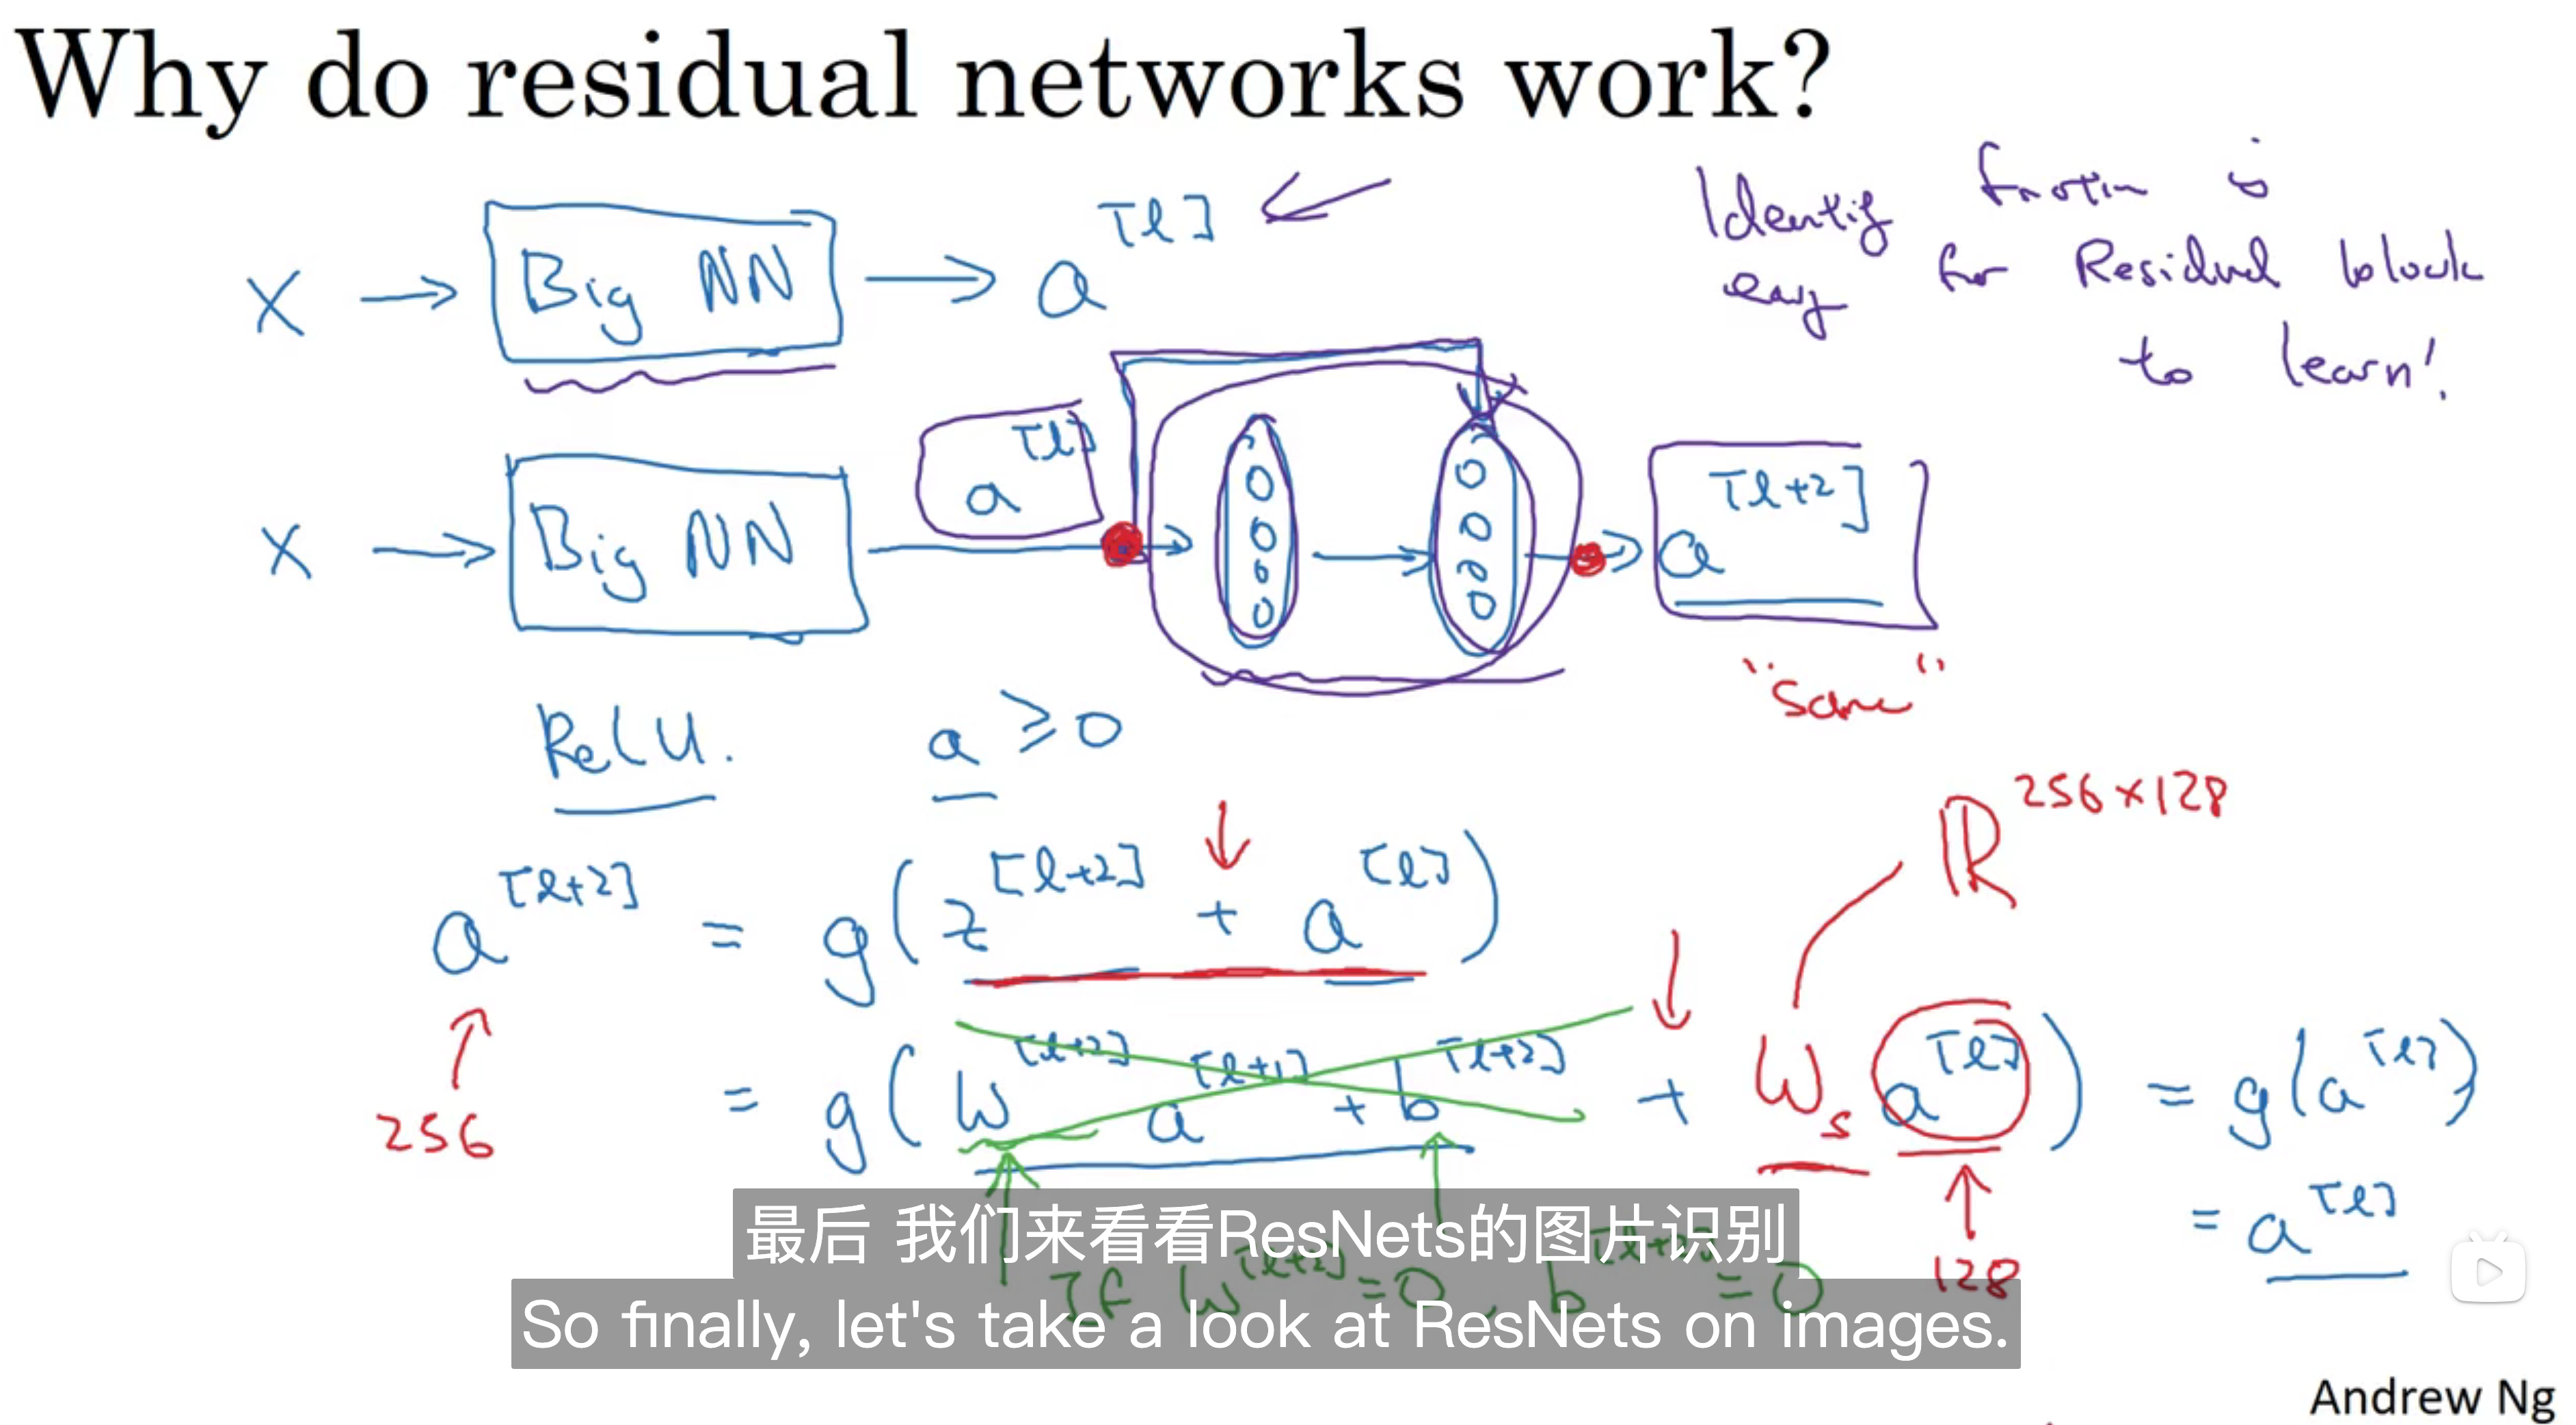 Why do residual networks work?
X → Big NN → a^[l]
Identity function is
easy for Residual block
to learn!
X → Big NN a^[l] → a^[l+2]
"same"
ReLU. a ≥ 0
ℝ^256×128
a^[l+2] = g(z^[l+2] + a^[l])
256
= g(W^[l+2] a^[l+1] + b^[l+2] + W_s a^[l]) = g(a^[l])
= a^[l]
128
最后 我们来看看ResNets的图片识别
If W^[l+2] = 0, b^[l+2] = 0
So finally, let's take a look at ResNets on images.
Andrew Ng